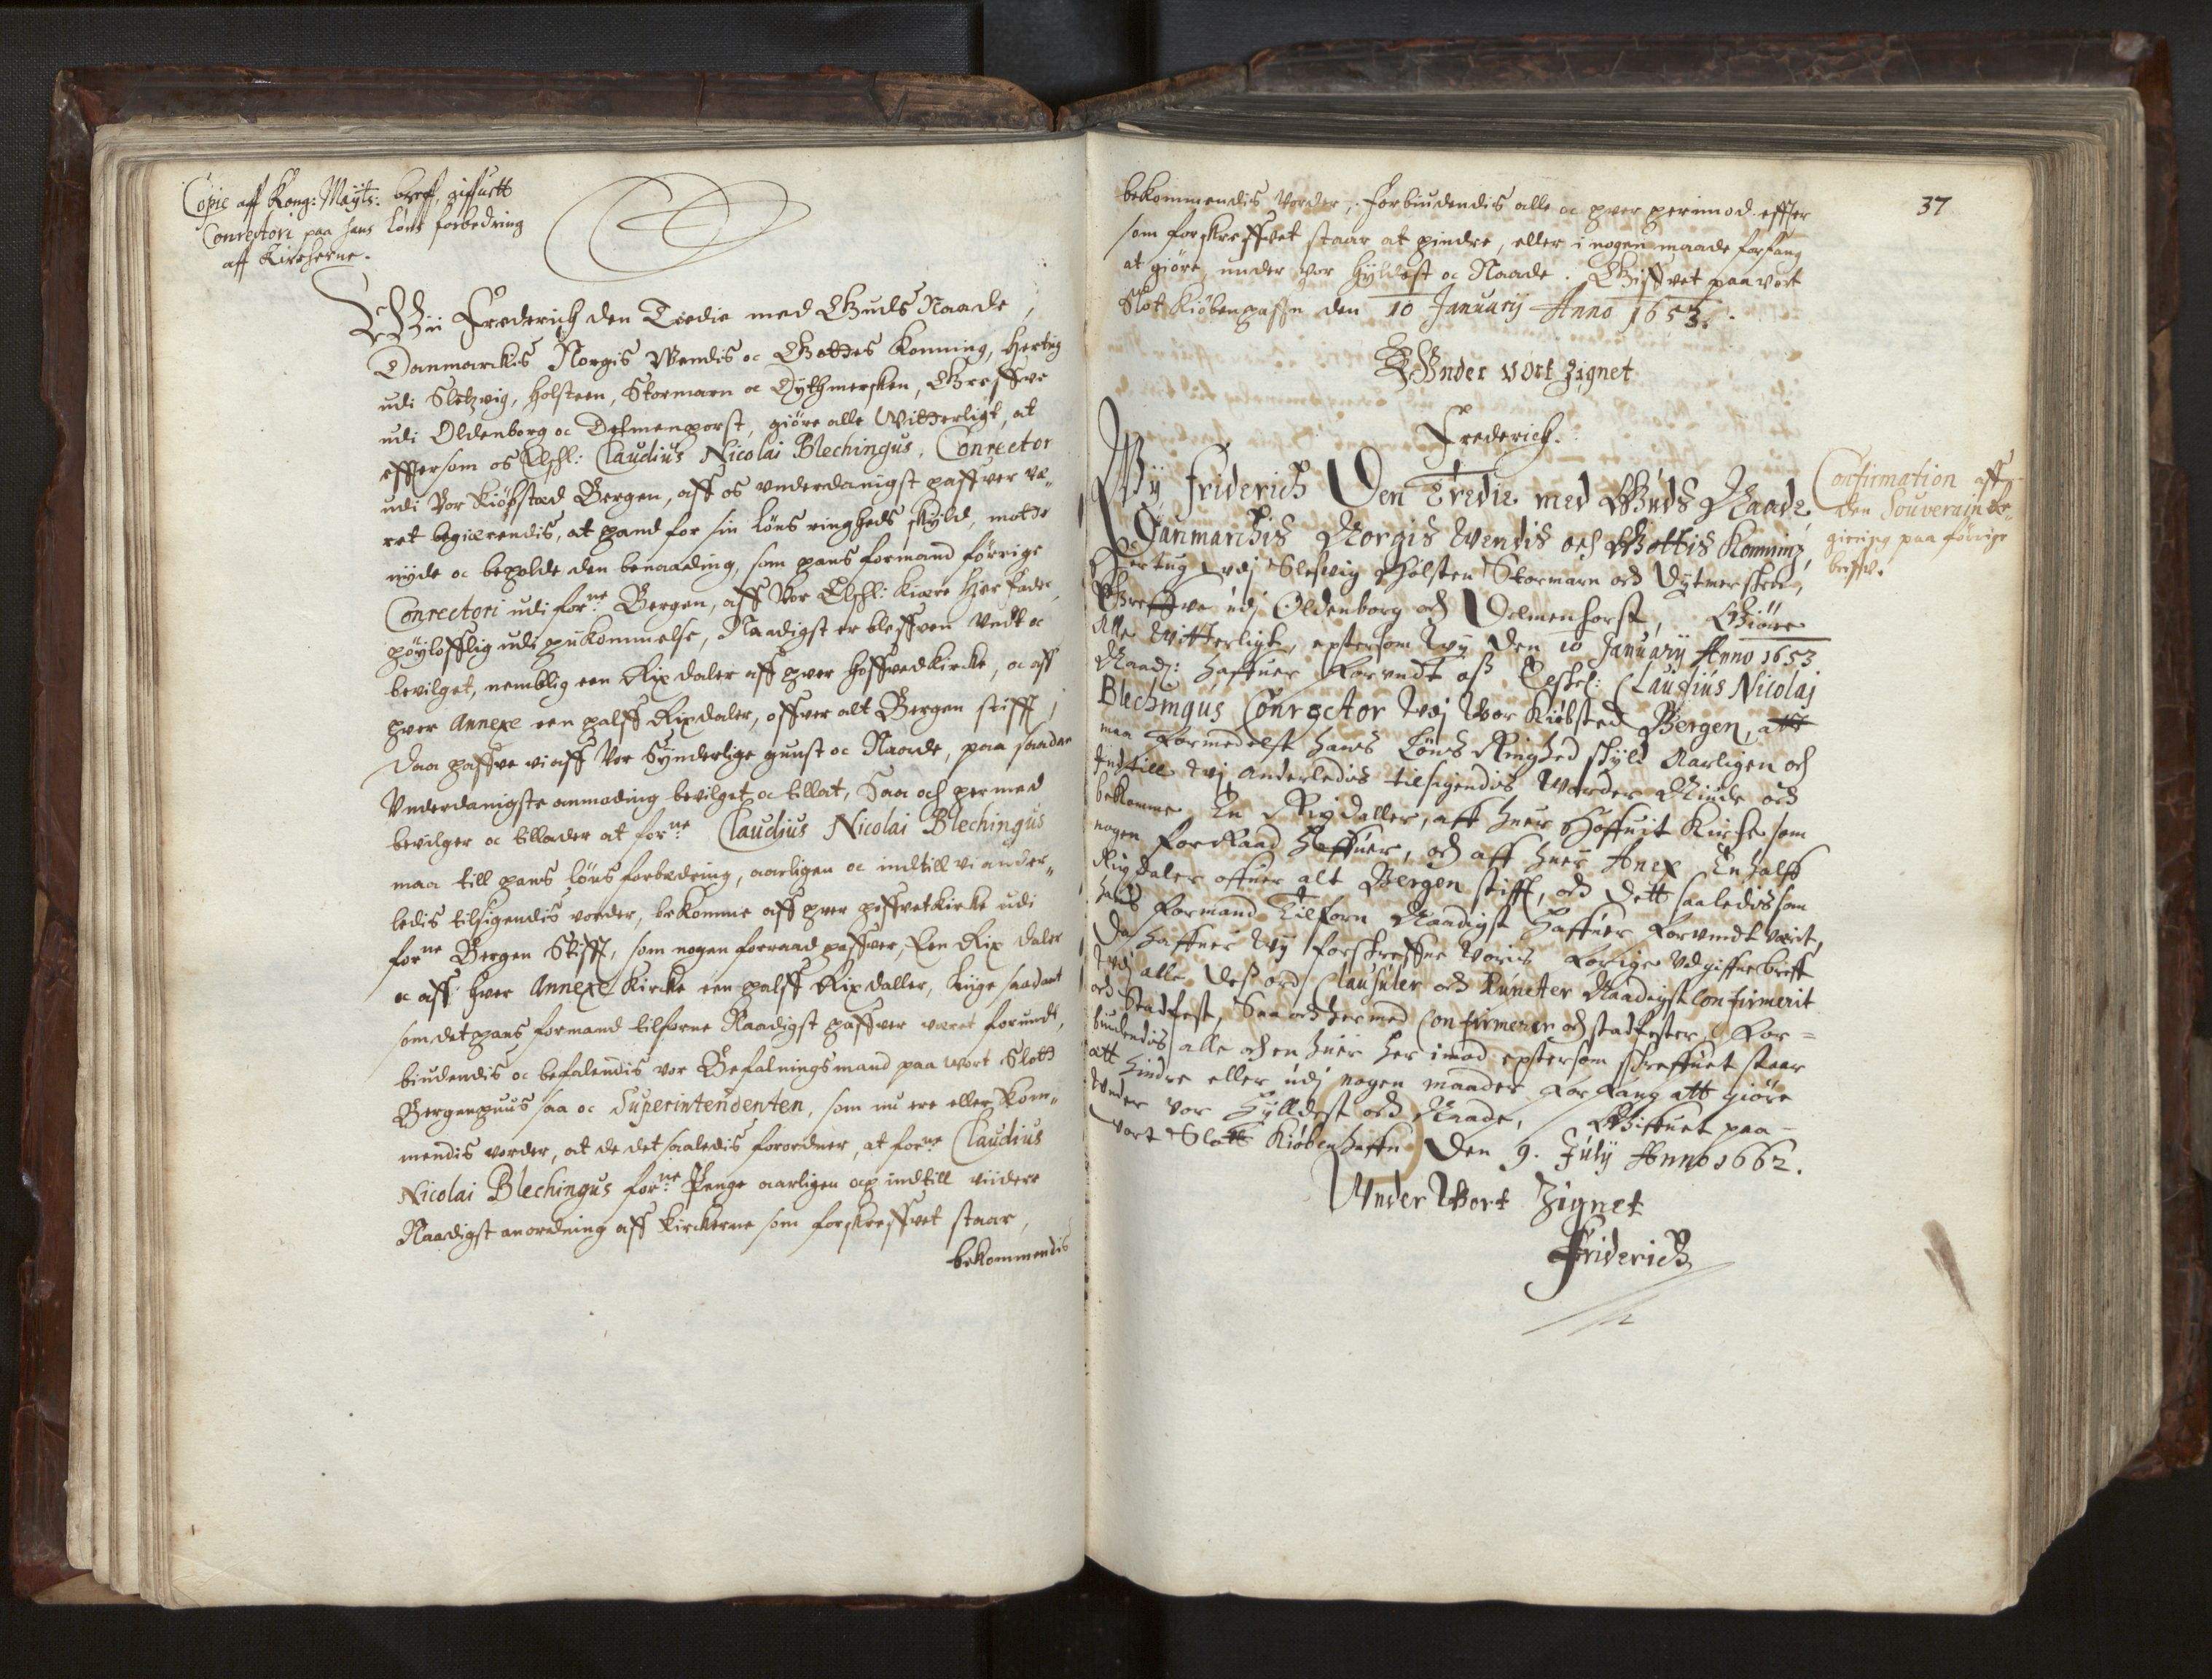 Copie aff Kong: Mayts: breff, giffuett
Conrectori paa hans löns forbedring
aff Kircherne.
Wii Frederich den Tredie med Guds Naade,
Danmarckis Norgis Wendis oc Gottes Konning, Hertug
udi Sletzvig, Holsteen, Stormarn oc Dythmersken, Greffve
udi Oldenborg oc Delmenhorst, giöre alle Witterligt, at
effersom os Elschl: Claudius Nicolai Blechingus, Conrector
udi Vor Kiöbstæd Bergen, aff os underdanigst haffver væ„
ret begierendis, at hand for sin löns ringheds skyld, motte
nyde oc beholde den benaading, som hans formand förrige
Conrectori udi forne: Bergen, aff Vor Elschl: kiære Her Fader,
höylofflig udi hukommelse, Naadigst er bleffven Undt oc
bevilget, nemblig een Rixdaler aff hver Hoffvedkircke, oc aff
hver Annexe een halff Rixdaler, offver alt Bergen stifft,
Daa haffve vi aff Vor Synderlige gunst oc Naade, paa saadan
Underdanigste anmoding bevilget oc tillat, Saa och hermed
bevilger oc tillader at forne: Claudius Nicolai Blechingus
maa till hans löns forbedring, aarligen oc indtill vi ander„
ledis tilsigendis vorder, bekomme aff hver hoffvetkircke udi
forne Bergen Stifft, som nogen forraad haffver, Een Rix daler
oc aff hver Annexe Kircke een halff Rixdaller, liige saadant
som det hans formand tilforne Naadigst haffver været forundt,
biudendis oc befalendis vor Befalningsmand paa vort Slott
Bergenhuus saa oc Superintendenten, som nu ere eller kom„
mendis vorder, at de det saaledis forordner, at forne Claudius
Nicolai Blechingus forne: Penge aarligen och indtill viidere
Naadigst anordning aff kirckerne som forskreffvet staar,
bekommendis
37
bekommendis vorder, Forbiudendis alle oc hver herimod effter
som forskreffvet staar at hindre, eller i nogen maade forfang
at giöre, under vor hyldest oc Naade. Giffvet paa vort
Slot Kiöbenhaffn den 10 Januarij Anno 1653.
Under vort Zignet
Frederich.
Confirmation aff
den Souverain Re„
giering paa förrige
breffve.
Wij Friderich Den Tredie med Guds Naade
Danmarchis Norgis Wendis och Gottis Konning,
Hertug udj Slesvig Holsten Stormarn och Dytmersken,
Greffve udj Oldenborg och Delmenhorst, Giöre
Alle Witterligt, eptersom Wij Den 10 Januarij Anno 1653
Naad: haffuer Forundt oss Elskel: Claudius Nicolaj
Blechingus Conrector Udj Vor Kiöbsted Bergen, att
maa formedelst hans Löns Ringhed skyld Aarligen och
Indtill Vj anderledis tilsigendis Worder Niude och
bekomme En Rixdaller, aff huer Hoffuit Kircke som
nogen ForRaad Haffuer, och aff huer Anex En halff
Rixdaler offuer alt Bergen stifft, och dett saaledis som
hans Formand Tilforn Naadigst Haffuer Forundt værit,
Da haffuer Wij forskreffne Voris Forige Udgiffne breff
Udj alle dess ord Clausuler och Puncter Naadigst Confirmerit
och Stadfest, Saa och hermed Confirmerer och stadfester, For=
biudendis alle och en huer her imod eptersom schreffuet staar
att hindre eller udj nogen maader Forfang att giöre
Under Vor Hylldest och Naade, Giffuet paa-
Vort Slott Kiöbenhaffn Den 9. Julij Anno 1662.
Under Vort Zignet
Friderich